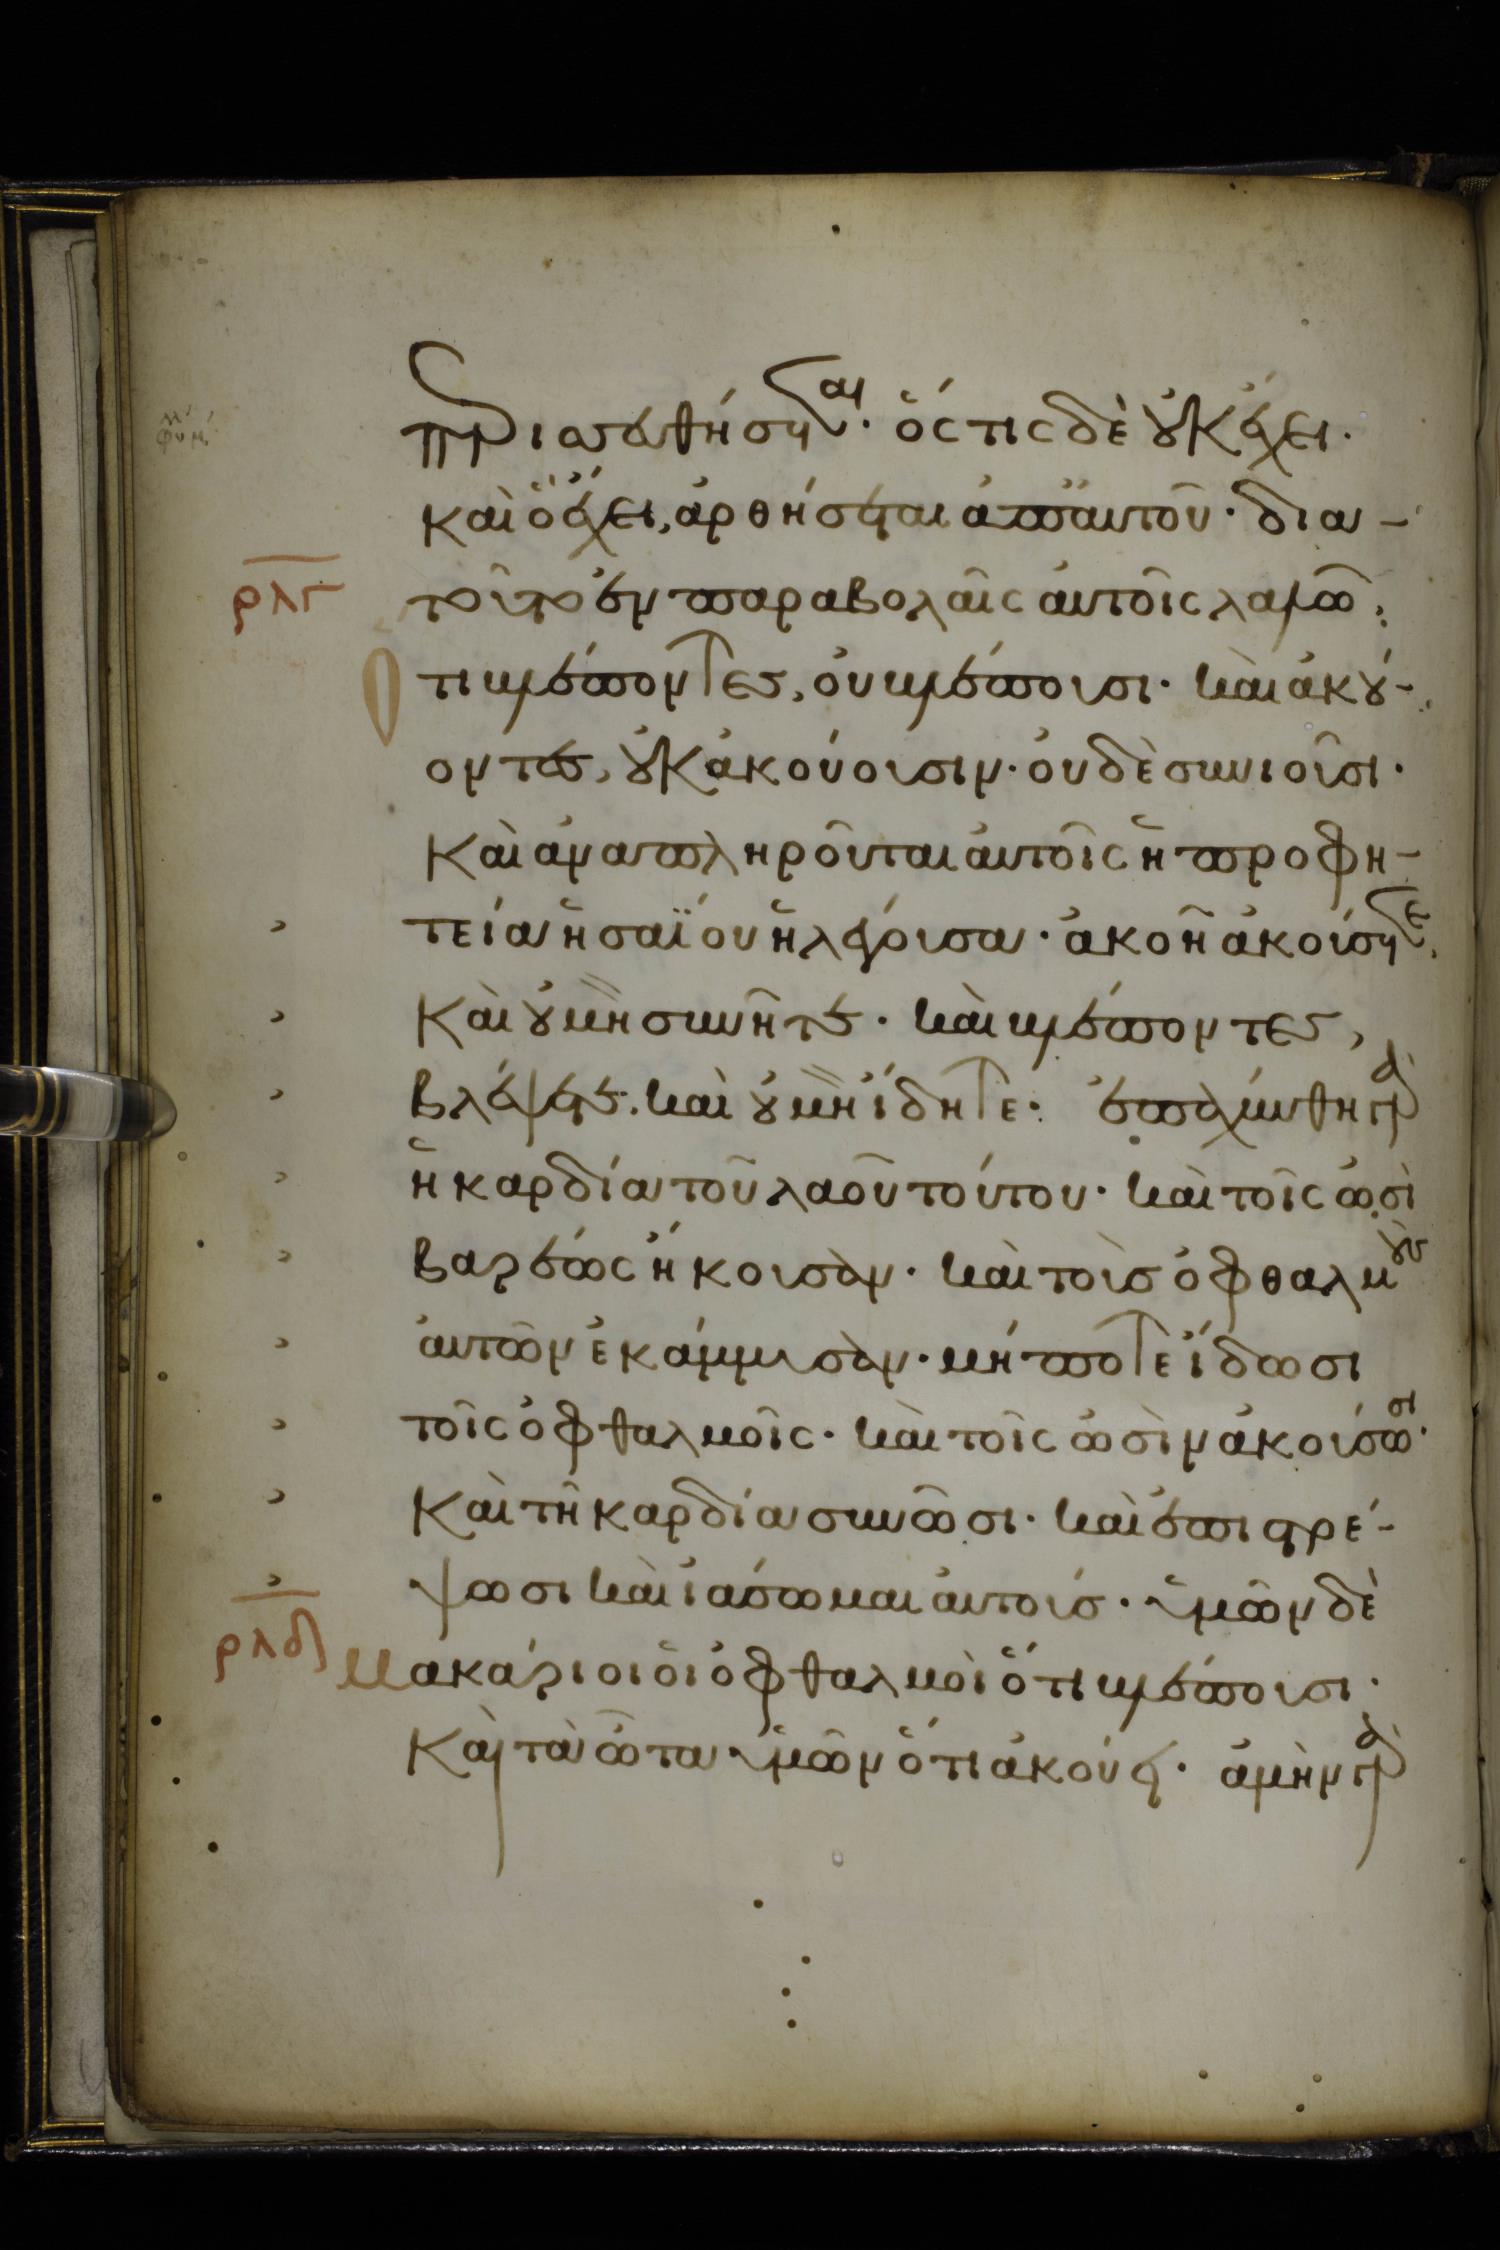 περισσευθήσεται· ὅστις δὲ οὐκ ἔχει·
καὶ ὃ ἔχει, ἀρθήσεται ἀπ' αὐτοῦ· δια-
ρλγ τοῦτο ἐν παραβολαῖς αὐτοῖς λαλῶ,
ὅτι βλέποντες, οὐ βλέπουσι· καὶ ἀκού-
οντες, οὐκ ἀκούουσιν· οὐδὲ συνιοῦσι·
Καὶ ἀναπληροῦται αὐτοῖς ἡ προφη-
τεία ἡσαΐου ἡ λέγουσα· ἀκοῆ ἀκούσετε,
Καὶ οὐ μὴ συνῆτε· καὶ βλέποντες,
βλέψετε· καὶ οὐ μὴ ἴδητε· ἐπαχύνθη γὰρ
ἡ καρδία τοῦ λαοῦ τούτου· καὶ τοῖς ὠσὶ
βαρέως ἤκουσαν· καὶ τοὺς ὀφθαλμοὺς
αὐτῶν ἐκάμμυσαν· μήποτε ἴδωσι
τοῖς ὀφθαλμοῖς· καὶ τοῖς ὠσὶν ἀκούσωσι·
Καὶ τῆ καρδία συνῶσι· καὶ ἐπιστρέ-
ψωσι καὶ ἰάσωμαι αὐτούς· ὑμῶν δὲ
ρλδ Μακάριοι οἱ ὀφθαλμοὶ ὅτι βλέπουσι·
Καὶ τὰ ὦτα ὑμῶν ὅτι ἀκούει· ἀμὴν γὰρ